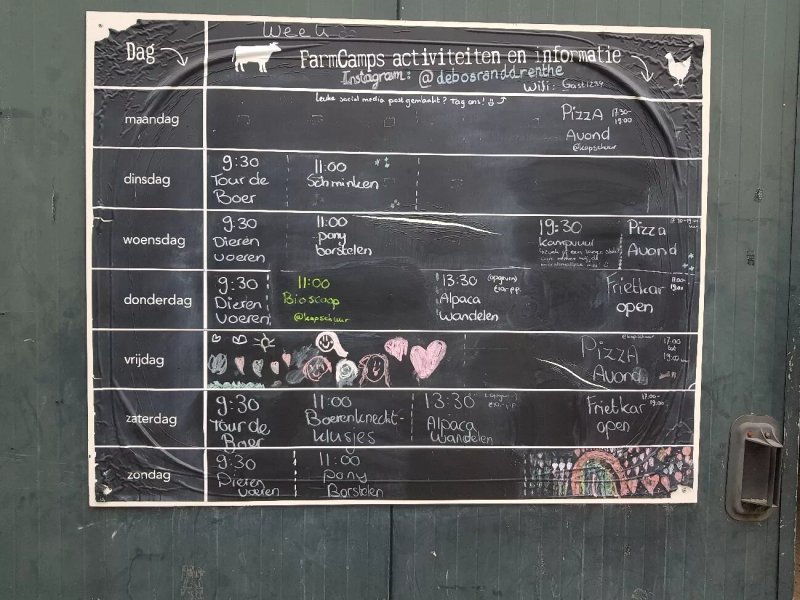 Dag
Week
FarmCamps activiteiten en informatie
Instagram: @debosranddrenthe
Wifi: Gast1234
Leuke social media post gemaakt? Tag ons!
maandag
Pizza 17:30-
19:00
Avond
@kapschuur
dinsdag
9:30
Tour de
Boer
11:00
Schminken
woensdag
9:30
Dieren
voeren
11:00
pony
borstelen
19:30
kampvuur
Pizza
Avond
donderdag
9:30
Dieren
voeren
11:00
Bioscoop
@kapschuur
13:30 (opgeven)
€10 p.p.
Alpaca
Wandelen
Frietkar
open
vrijdag
@kapschuur
Pizza 17:00
tot
19:00 uur
Avond
zaterdag
9:30
Tour de
Boer
11:00
Boerenknecht-
klusjes
13:30
Alpaca
Wandelen
Frietkar 17:00-
19:00
open
zondag
9:30
Dieren
voeren
11:00
pony
Borstelen